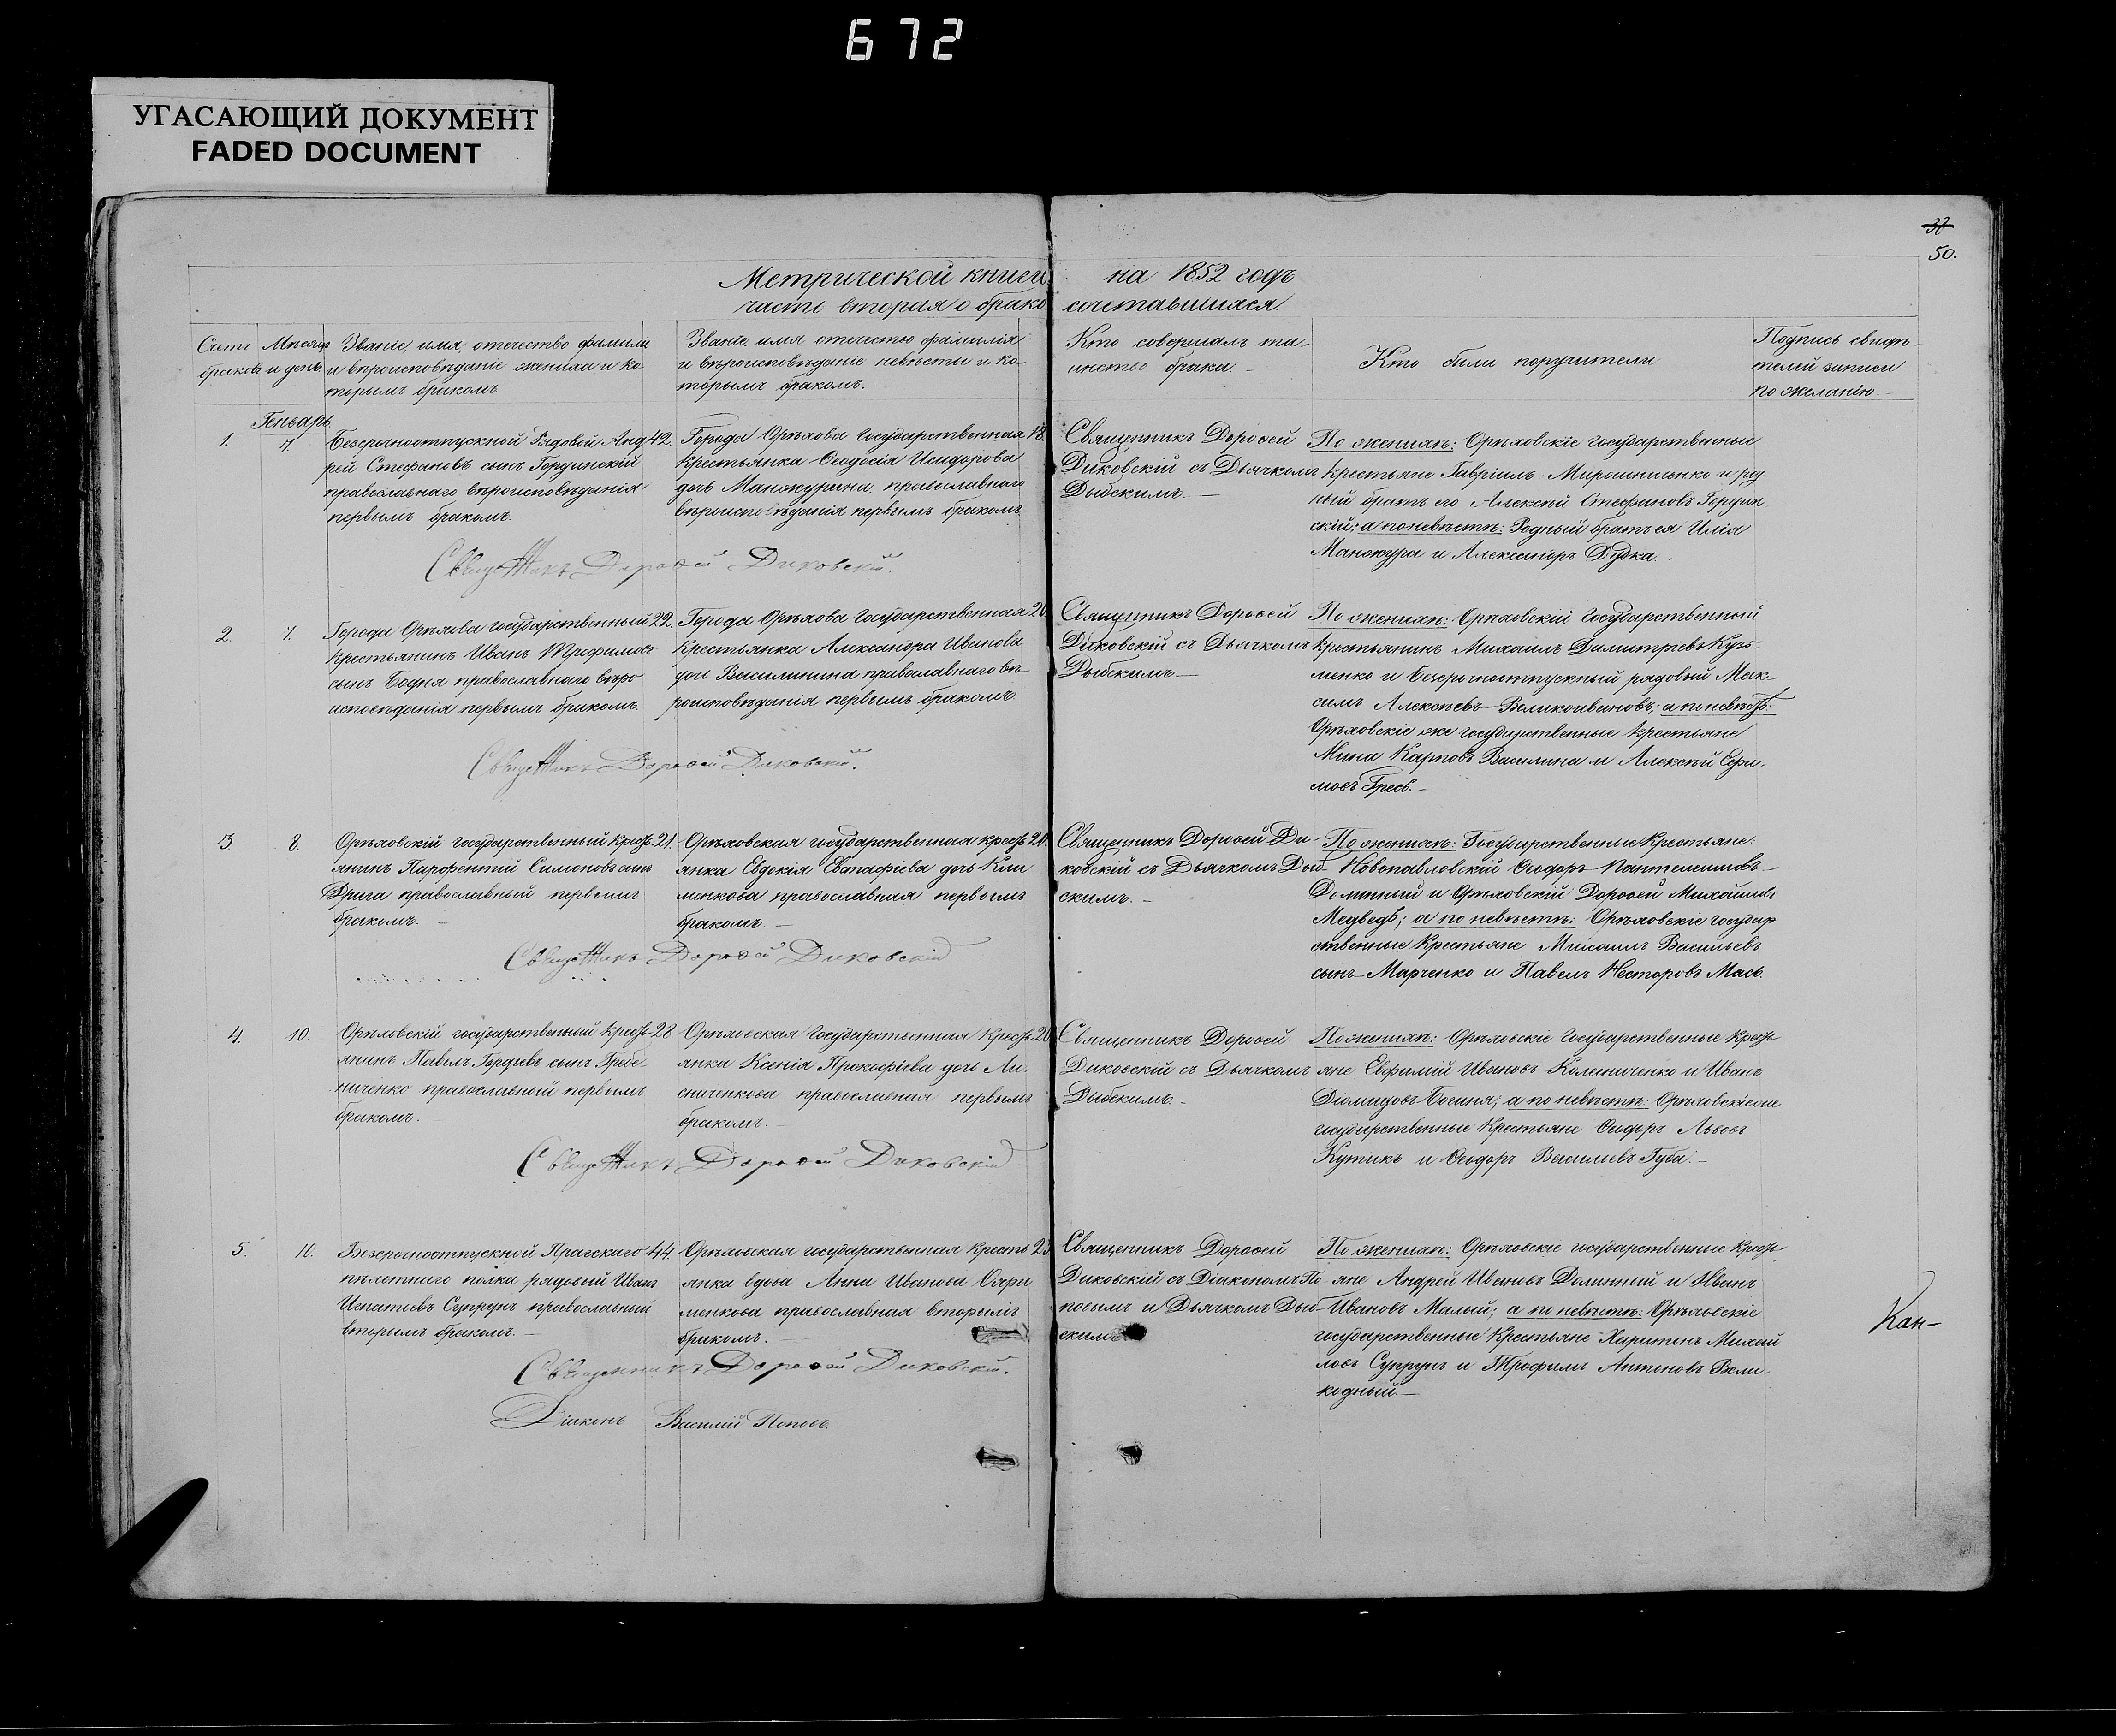 672
УГАСАЮЩИЙ ДОКУМЕНТ
FADED DOCUMENT
37
50.
Метрической книги на 1852 годъ
часть вторая о брако сочетавшихся
Счетъ браковъ
Мѣсяцъ и день
Званіе, имя, отечество фамилія
и вѣроисповѣданіе жениха и ко-
торымъ бракомъ
Званіе, имя отечество фамилія
и вѣроисповѣданіе невѣсты и ко-
торымъ бракомъ.
Кто совершалъ та-
инство брака.
Кто были поручители
Подпись свидѣ-
телей записи
по желанію.
Генварь
1. 7.
Безсрочноотпускной Рядовой Анд 42.
рей Стефановъ сынъ Гординскій
православнаго вѣроисповѣданія
первымъ бракомъ.
Города Орѣхова государственная 18
крестьянка Ѳеодосія Исидорова
дочь Манжурина, православнаго
вѣроисповѣданія первымъ бракомъ
Священникъ Дороѳей
Диковскій съ Дьячкомъ
Дыбскимъ.
По женихѣ: Орѣховскіе государственные
крестьяне Гавріилъ Мирошниченко и род
ный братъ его Алексѣй Стефановъ Гордин
скій; а по невѣстѣ: Родный братъ ея Илія
Манжура и Александръ Дудка.
Священникъ Дороѳей Диковскій.
2. 7.
Города Орѣхова государственный 22.
крестьянинъ Иванъ Трофимовъ
сынъ Бодня православнаго вѣро
исповѣданія первымъ бракомъ.
Города Орѣхова Государственная 20
крестьянка Александра Иванова
дочь Василинина православнаго вѣ-
роисповѣданія первымъ бракомъ
Священникъ Дороѳей
Диковскій съ Дьячкомъ
Дыбскимъ
По женихѣ: Орѣховскій Государственный
крестьянинъ Михаилъ Димитріевъ Кузь-
менко и безсрочноотпускный рядовый Мак-
симъ Алексѣевъ Великоивановъ; а по невѣстѣ:
Орѣховскіе же государственные крестьяне
Мина Карповъ Василина и Алексѣй Ефи-
мовъ Гресь.
Священникъ Дороѳей Диковскій.
3. 8.
Орѣховскій государственный крест- 21.
янинъ Парфентій Симоновъ сынъ
Дрига православный первымъ
бракомъ.
Орѣховская государственная крест- 20
янка Евдокія Евстафіева дочь Кли
менкова православная первымъ
бракомъ.
Священникъ Дороѳей Ди-
ковскій съ Дьячкомъ Дыб-
скимъ.
По женихѣ: Государственные Крестьяне:
Новопавловскій Ѳеодоръ Пантелеимовъ
Долинный и Орѣховскій Дороѳей Михайловъ
Медведь; а по невѣстѣ: Орѣховскіе государ
ственные крестьяне Михаилъ Васильевъ
сынъ Марченко и Павелъ Несторовъ Мась.
Священникъ Дороѳей Диковскій
4. 10.
Орѣховскій государственный крест- 28.
янинъ Павелъ Гордѣевъ сынъ Гребе-
ниченко православный первымъ
бракомъ.
Орѣховская Государственная Крест- 20
янка Ксенія Прокофіева дочь Ли-
сниченкова православная первымъ
бракомъ.
Священникъ Дороѳей
Диковскій съ Дьячкомъ
Дыбскимъ.
По женихѣ: Орѣховскіе государственные крест-
яне Евфимій Ивановъ Колениченко и Иванъ
Діомидовъ Богиня; а по невѣстѣ: Орѣховскіе же
государственные крестьяне Ѳеодоръ Львовъ
Кутикъ и Ѳеодоръ Василіевъ Губа.
Священникъ Дороѳей Диковскій
5. 11.
Безсрочноотпускной Прагскаго 44.
пѣхотнаго полка рядовый Иванъ
Игнатьевъ Супрунъ православный
вторымъ бракомъ.
Орѣховская государственная кресть
янка вдова Анна Иванова
менкова православная вторымъ
бракомъ.
Священникъ Дороѳей
Диковскій съ Діакономъ По
повымъ и Дьячкомъ Дыб-
скимъ
По женихѣ: Орѣховскіе государственные крест-
яне Андрей Ивановъ Долинный и Иванъ
Ивановъ Малый; а по невѣстѣ: Орѣховскіе
государственные Крестьяне Харитонъ Михай
ловъ Супрунъ и Трофимъ Антоновъ Вели
кодный
Священникъ Дороѳей Диковскій.
Діаконъ Василій Поповъ.
Кан-